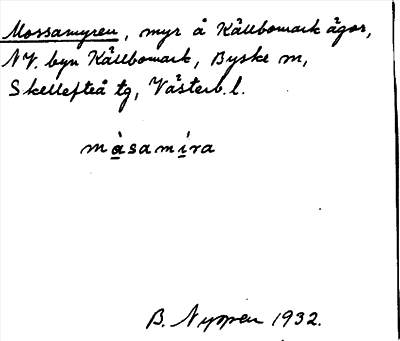 Mossamyren, myr å Källbomark ägor,
NV. byn Källbomark, Byske sn,
Skellefteå tg, Västerb. l.
màsamìra
B. Nyman 1932.